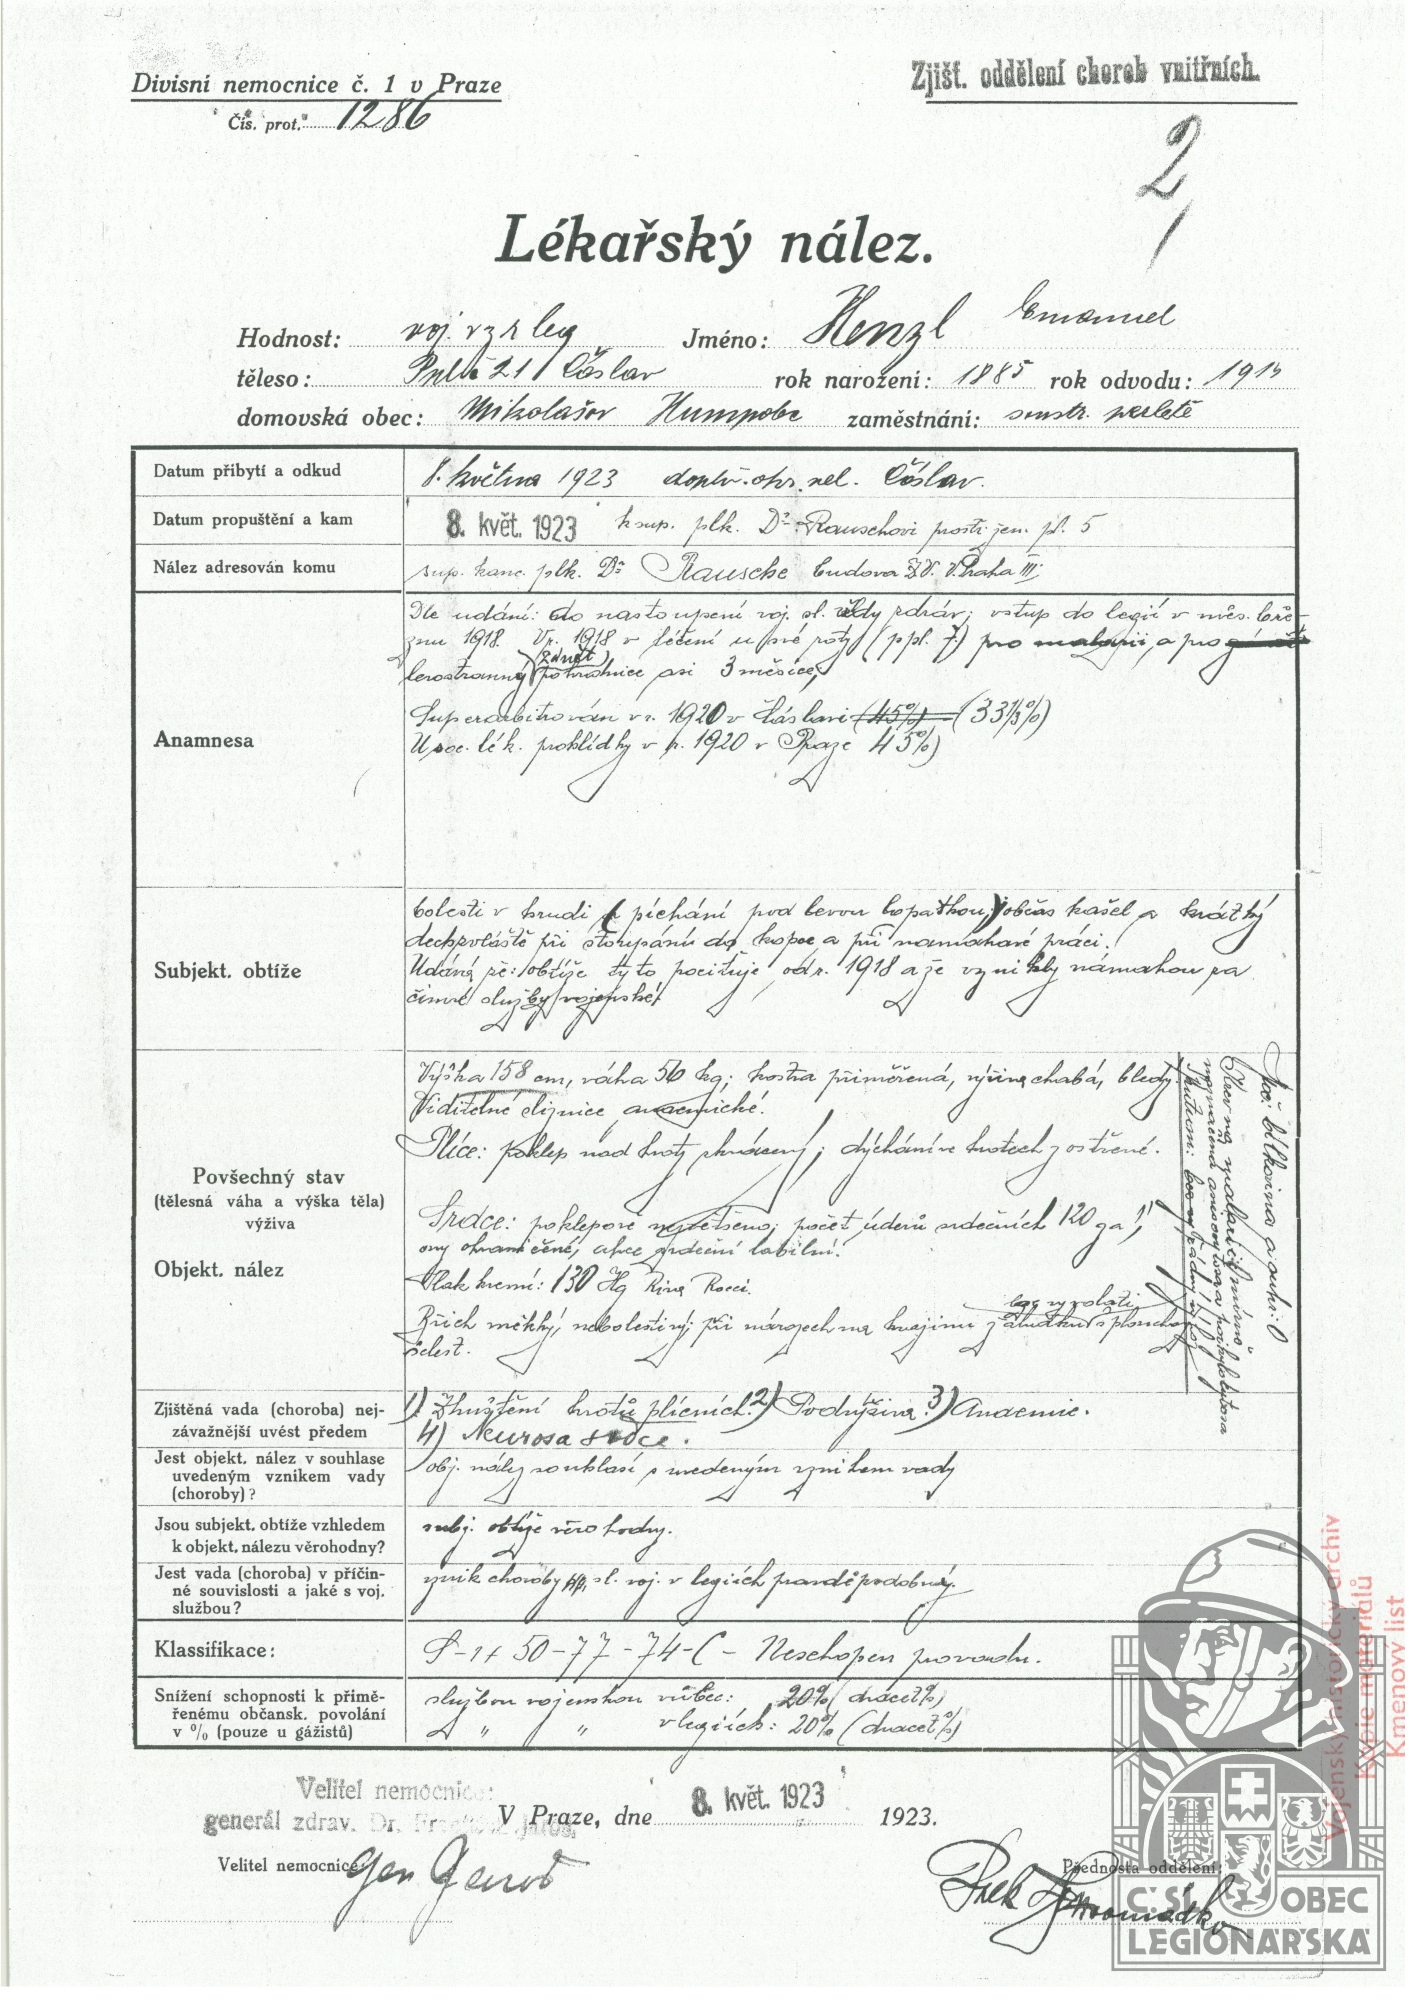 Divisní nemocnice č. 1 v Praze
Zjišť. oddělení chorob vnitřních.
Čís. prot. 1286
2
Lékařský nález.
Hodnost: voj. v z. leg Jméno: Henzl Emanuel
těleso: 21 Čáslav rok narození: 1885 rok odvodu: 191
domovská obec: Mikolašov Humpobc zaměstnání:
Datum přibytí a odkud 8. května 1923 doplň. okr. vel. Čáslav.
Datum propuštění a kam 8. květ. 1923 k sup. plk. Dr. Rauschovi pl. 5
Nález adresován komu sup. kanc. plk. Dr Rausche budova Z.V. V. Praha III
Anamnesa
Dle udání: do nastoupení voj. sl. vždy zdráv; vstup do legií v měs. břez
nu 1918. V r. 1918 v léčení u své roty (p pl. 7.) pro malarii, a pro
zánět
levostranný pohrudnice asi 3 měsíce,
Superarbitrován v r. 1920 v Čáslavi (45%) (33⅓%)
U soc. lék. prohlídky v r. 1920 v Praze 45%)
Subjekt. obtíže
bolesti v hrudi (píchání pod levou lopatkou,) občas kašel a krátký
dech zvláště při stoupání do kopce a při namáhavé práci.
Udává že: obtíže tyto pociťuje od r. 1918 a že vznikly námahou za
činné služby vojenské.
Povšechný stav
(tělesná váha a výška těla)
výživa
Objekt. nález
Výška 158 cm, váha 56 kg; kostra přiměřená, výživa chabá, bledý
Viditelné sliznice anaemické.
Plíce: poklep nad hroty zkrácený; dýchání ve hrotech zostřené.
Srdce: poklepově nezvětšeno; počet úderů srdečních 120 za 1',
ozvy ohraničené, akce srdeční labilní.
Tlak krevní: 130 Hg Riva Rocci.
Břich měkký, nebolestivý; při nárazech na krajinu žaludku lze vyvolati šplouchavý
šelest.
Moč: bílkovina a cukr: 0
Krev na malarii: mírně
naznačená anisocytosa a poikilocytosa
Sputum:
Zjištěná vada (choroba) nej-
závažnější uvést předem
1) Zhuštění hrotů plicních. 2) Podvýživa. 3) Anaemie.
4) Neurosa srdce.
Jest objekt. nález v souhlase
uvedeným vznikem vady
(choroby)?
obj. nález souhlasí s uvedeným vznikem vady
Jsou subjekt. obtíže vzhledem
k objekt. nálezu věrohodny?
subj. obtíže věrohodny.
Jest vada (choroba) v příčin-
né souvislosti a jaké s voj.
službou?
vznik choroby sl. voj. v legiích pravděpodobný.
Klasifikace: 50-77-74-C - Neschopen provodu.
Snížení schopnosti k přimě-
řenému občansk. povolání
v % (pouze u gážistů)
službou vojenskou vůbec: 20% (dvacet%)
" " v legiích: 20% (dvacet%)
Velitel nemocnice:
generál zdrav. Dr.
V Praze, dne 8. květ. 1923 1923.
Velitel nemocnice: Gen
Přednosta oddělení:
Vojenský historický archiv
Kopie materiálů
Kmenový list
ČSL OBEC
LEGIONÁŘSKÁ